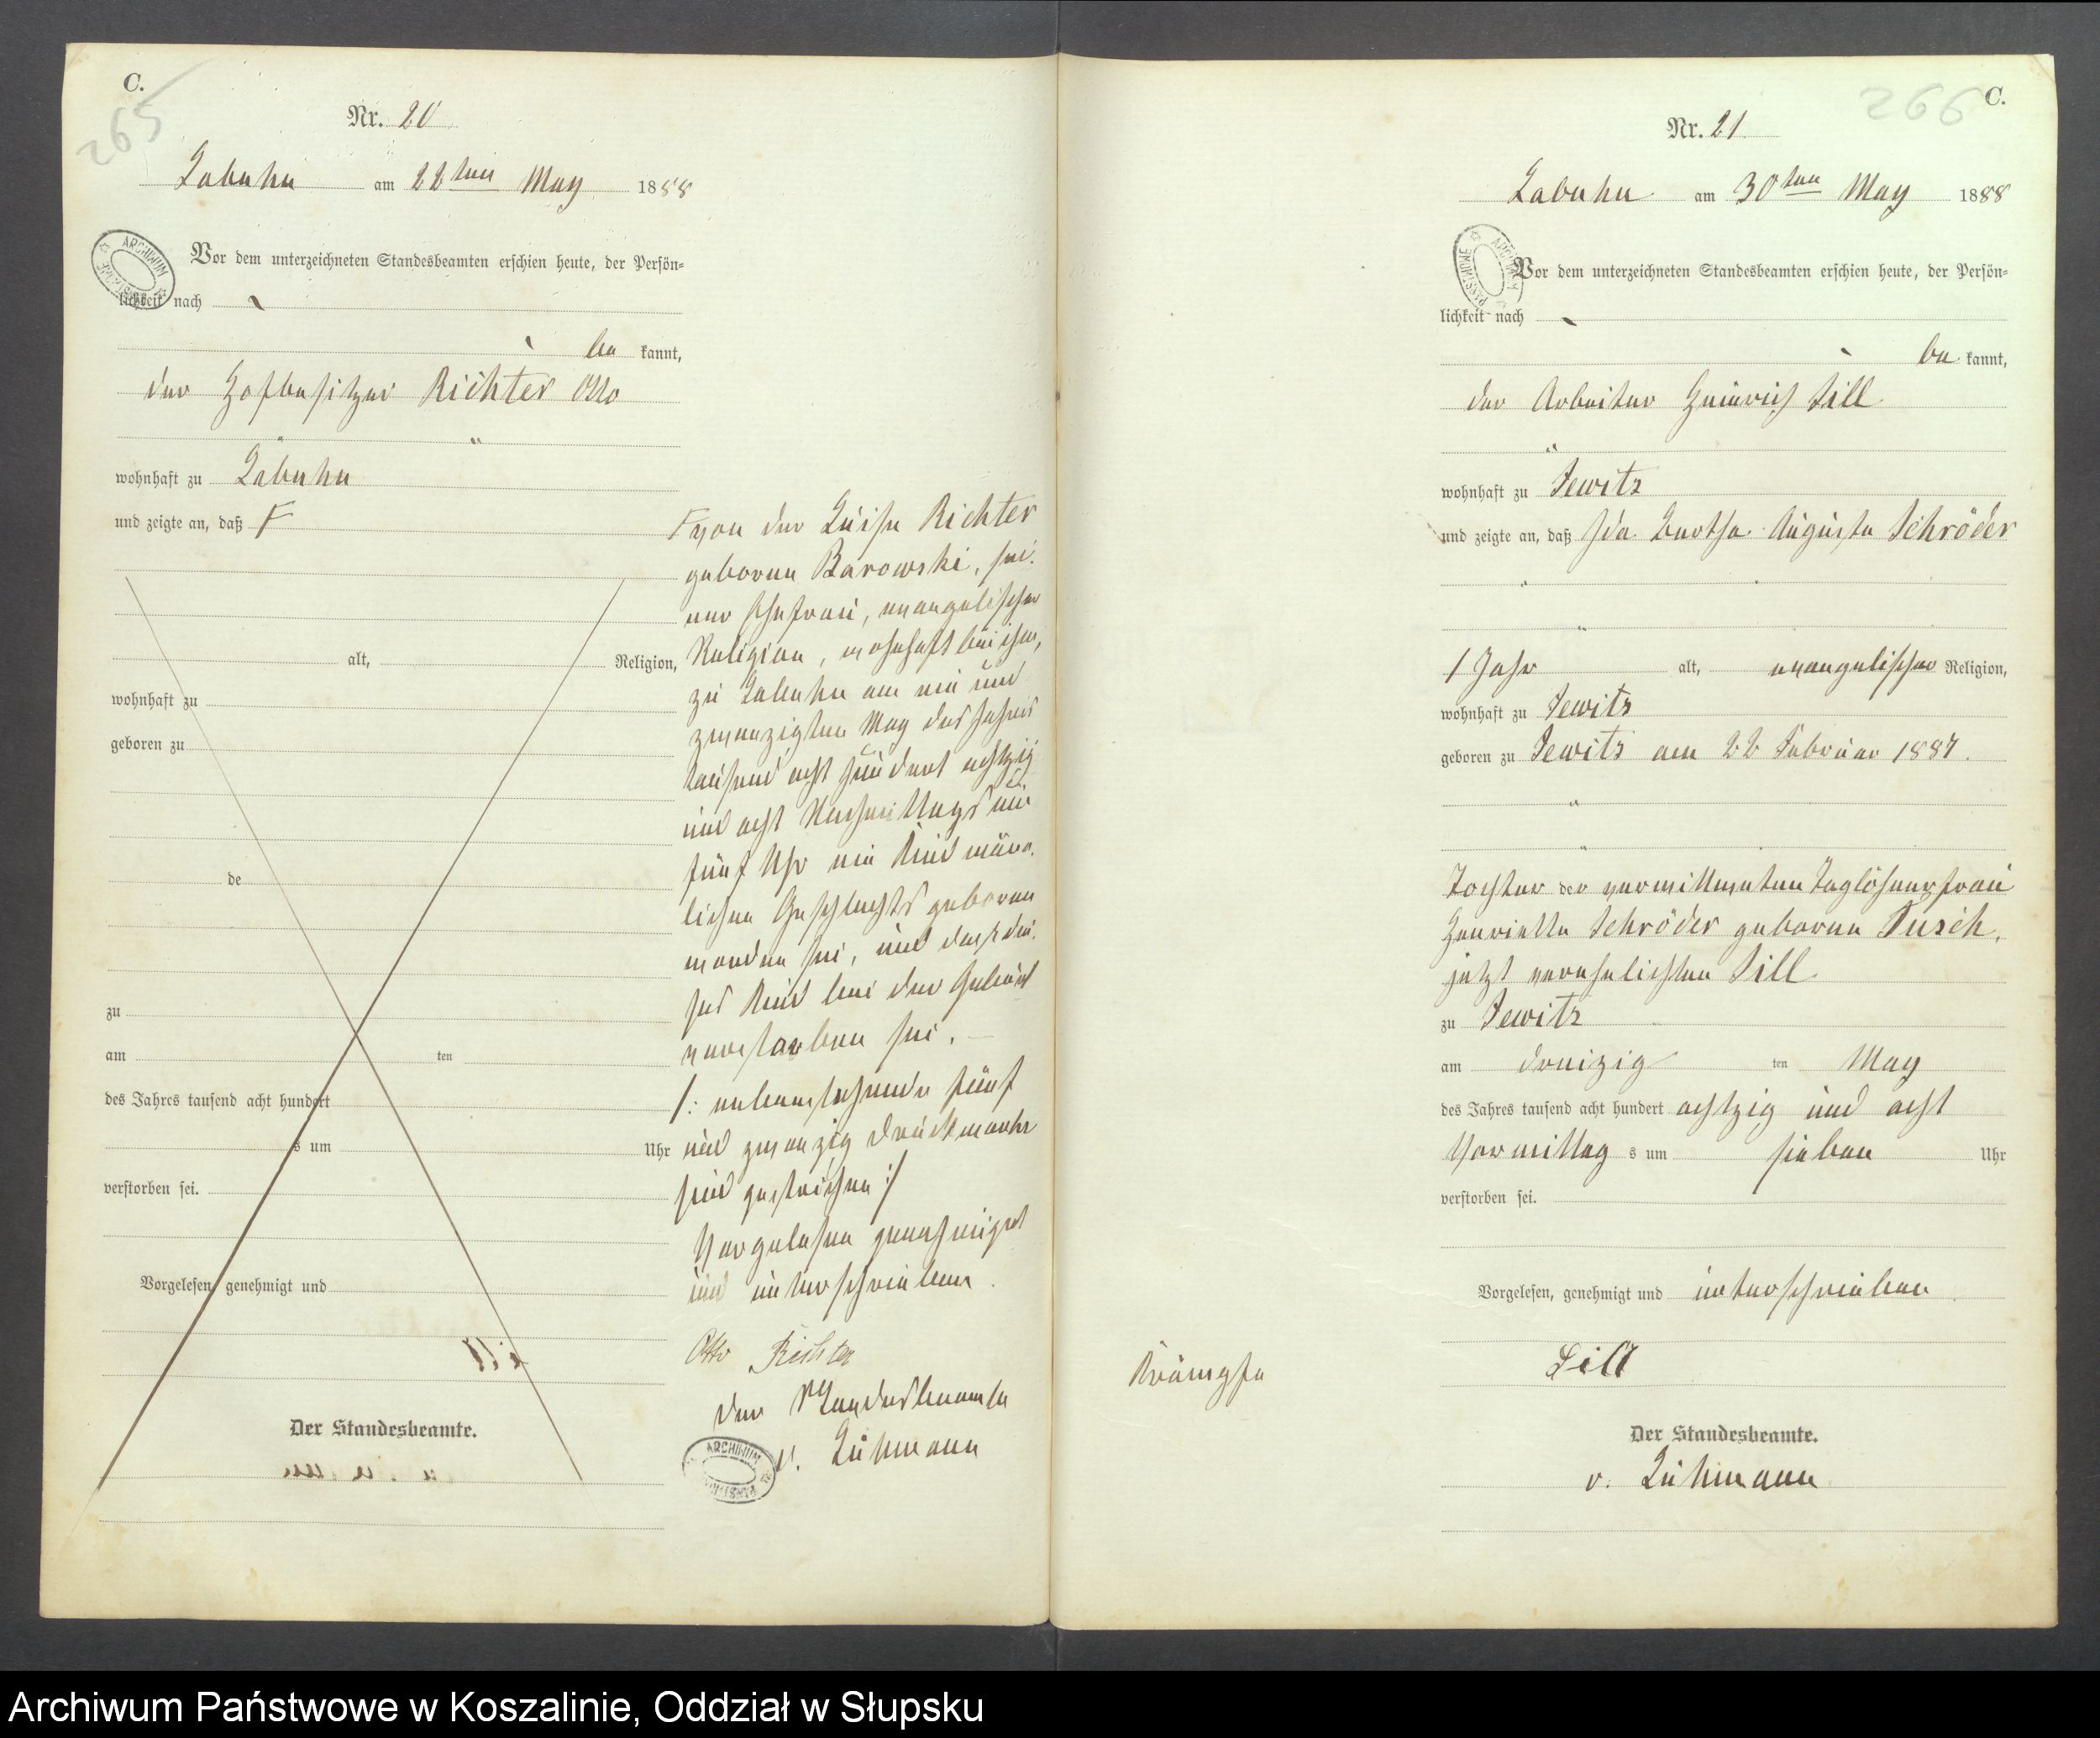 C.
265
Nr. 20
Labuhn am 22ten May 1888
Vor dem unterzeichneten Standesbeamten erschien heute, der Persön-
lichkeit nach
be kannt,
der Hofbesitzer Richter Otto
wohnhaft zu Labuhn
und zeigte an, daß F
alt, Religion,
wohnhaft zu
geboren zu
de
zu
am ten
des Jahres tausend acht hundert
s um Uhr
verstorben sei.
Vorgelesen, genehmigt und
Der Standesbeamte.
F von der Luise Richter
geborene Barowski, sei-
ner Ehefrau, evangelischer
Religion, wohnhaft bei ihm,
zu Labuhn am ein und
zwanzigten May des Jahres
tausend acht hundert achtzig
und acht Nachmittags um
fünf Uhr ein Kind männ-
lichen Geschlechts geboren
worden sei, und daß die-
ses Kind bei der Geburt
verstorben sei.
/: nebenstehende fünf
und zwanzig Druckworte
sind gestrichen :/
Vorgelesen genehmigt
und unterschrieben.
Otto Richter
Der Standesbeamte
v. Puttkamer
ARCHIWUM PAŃSTWOWE
C.
266
Nr. 21
Labuhn am 30ten May 1888
Vor dem unterzeichneten Standesbeamten erschien heute, der Persön-
lichkeit nach
be kannt,
der Arbeiter Heinrich Sill
wohnhaft zu Jewitz
und zeigte an, daß Ida Bertha Auguste Schröder
1 Jahr alt, evangelischer Religion,
wohnhaft zu Jewitz
geboren zu Jewitz am 22 Februar 1887.
Tochter der verwittweten Taglöhnerfrau
Henriette Schröder geborene Pusch,
jetzt verehelichten Sill
zu Jewitz
am dreizig ten May
des Jahres tausend acht hundert achtzig und acht
Vormittag s um sieben Uhr
verstorben sei.
Vorgelesen, genehmigt und unterschrieben
Krämpfe
Sill
Der Standesbeamte.
Archiwum Państwowe w Koszalinie, Oddział w Słupsku